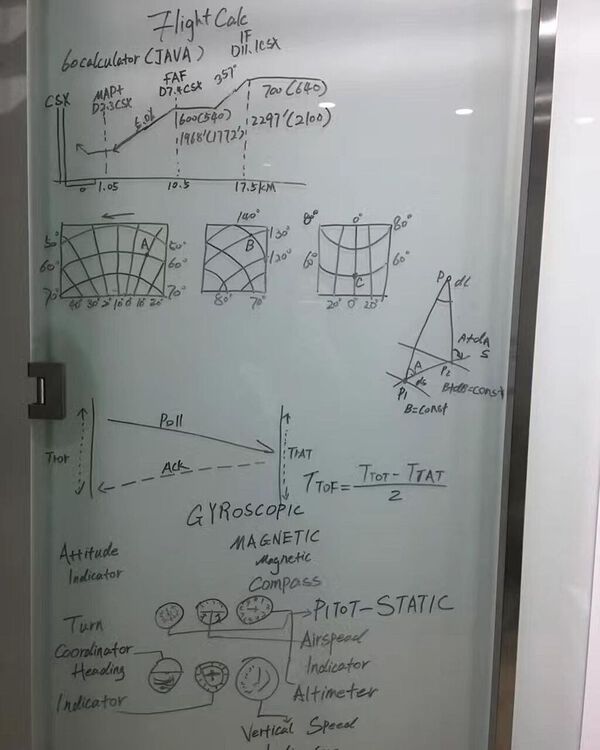 Flight Calc
Gocalculator (JAVA)
IF
D11.1CSX
FAF
D7.4CSX
357°
MAPt
D2.3CSX
CSX
700 (640)
600(540)
2297'(2100)
1968'(1772')
0 1.05 10.5 17.5KM
50° A 50°
60° 60°
70° 70°
40° 30° 2° 10° 0° 10° 20°
140°
130°
B
120°
80° 70°
80° 0° 80°
60° 60°
C
20° 0° 20°
P dL
A+dA
S
A P2
ds
P1
B+dB=const
B=const
Poll
TTOT TTAT
Ack
TTOF = TTOT - TTAT
2
GYROSCOPIC
MAGNETIC
Attitude
Indicator
Magnetic
Compass
PITOT-STATIC
Turn
Coordinator
Airspeed
Indicator
Heading
Indicator
Altimeter
Vertical Speed